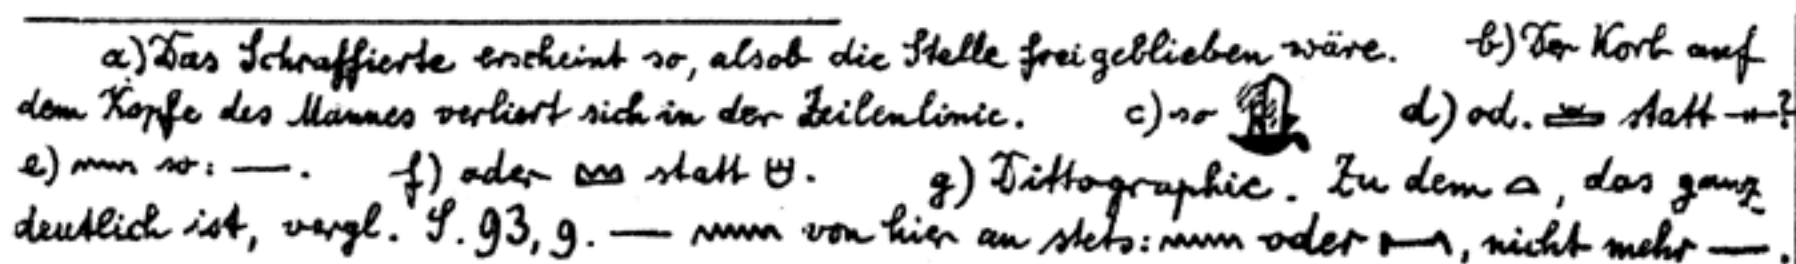 a) Das Schraffierte erscheint so, alsob die Stelle frei geblieben wäre. b) Der Korb auf
dem Kopfe des Mannes verliert sich in der Zeilenlinie. c) so 𓉐 d) od. statt ?
e) nur so: —. f) oder statt . g) Dittographie. Zu dem , das ganz
deutlich ist, vergl. S. 93, 9. — von hier an stets: oder , nicht mehr —.